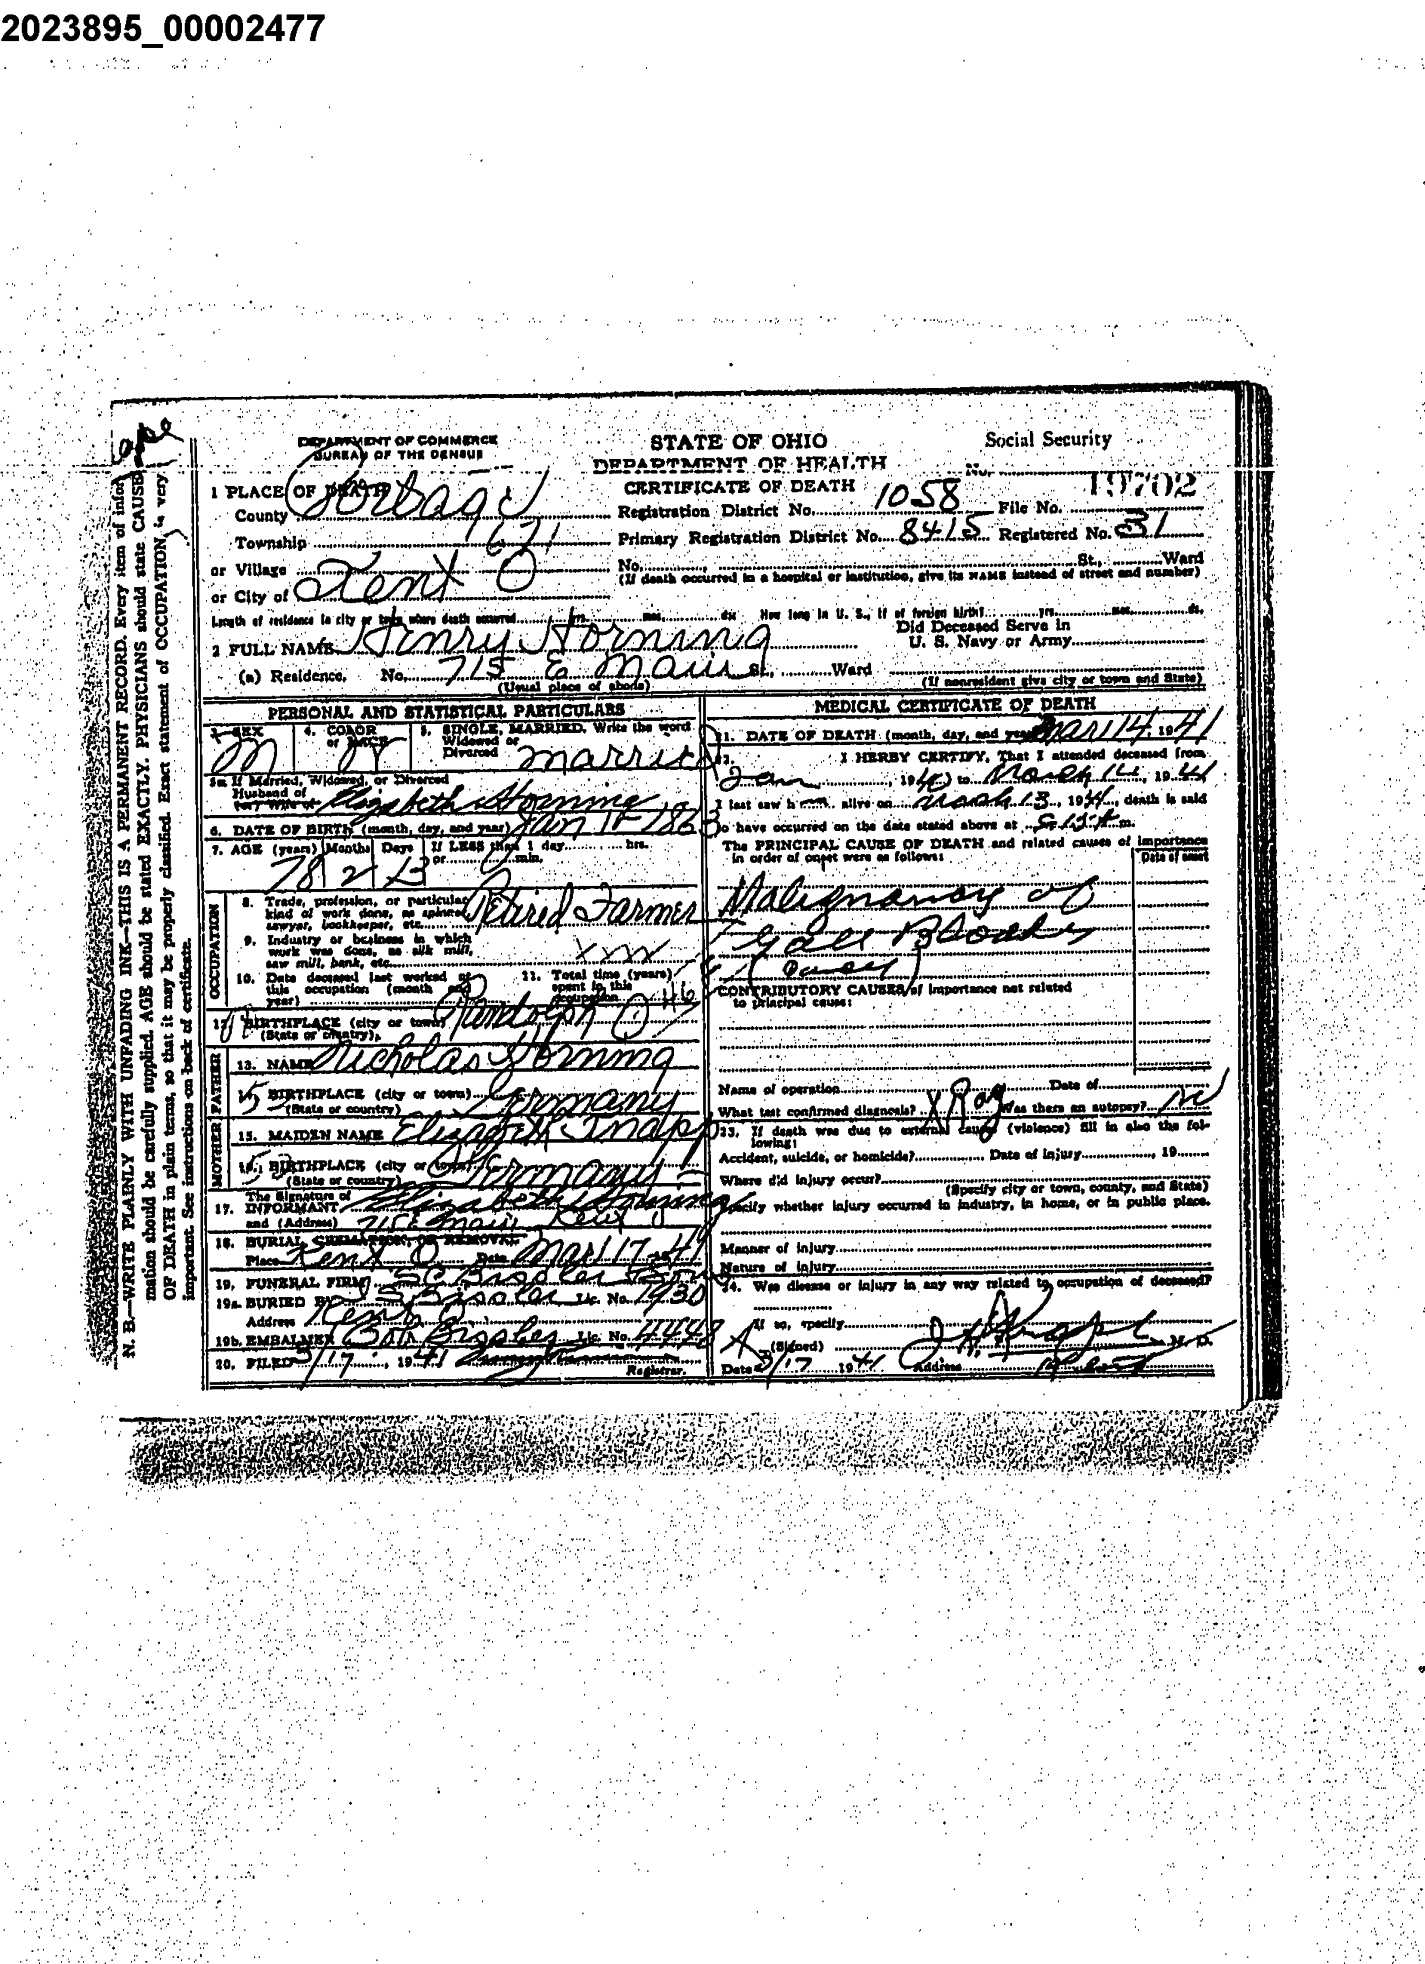 2023895_00002477
DEPARTMENT OF COMMERCE
BUREAU OF THE CENSUS
STATE OF OHIO
DEPARTMENT OF HEALTH
CERTIFICATE OF DEATH
Social Security
No.
19702
1 PLACE OF DEATH
County Portage
Registration District No. 1058 File No.
Township 671
Primary Registration District No. 8415 Registered No. 31
or Village
No. St., Ward
(If death occurred in a hospital or institution, give its NAME instead of street and number)
or City of Kent O
Length of residence in city or town where death occurred yrs. mos. ds. How long in U. S., if of foreign birth? yrs. mos. ds.
2 FULL NAME Henry Horning
Did Deceased Serve in
U. S. Navy or Army
(a) Residence. No. 715 E Main St., Ward
(Usual place of abode) (If nonresident give city or town and State)
PERSONAL AND STATISTICAL PARTICULARS
3. SEX M
4. COLOR or RACE W
5. SINGLE, MARRIED, Write the word
Widowed or
Divorced married
5a If Married, Widowed, or Divorced
Husband of
(or) Wife of Elizabeth Horning
6. DATE OF BIRTH (month, day, and year) Jan 1st 1863
7. AGE (years) Months Days If LESS than 1 day hrs.
or min.
78 2 13
OCCUPATION
8. Trade, profession, or particular
kind of work done, as spinner,
sawyer, bookkeeper, etc. Retired Farmer
9. Industry or business in which
work was done, as silk mill,
saw mill, bank, etc.
10. Date deceased last worked at
this occupation (month and
year)
11. Total time (years)
spent in this
occupation
12. BIRTHPLACE (city or town) Randolph O
(State or country)
FATHER
13. NAME Nicholas Horning
14. BIRTHPLACE (city or town) Germany
(State or country)
MOTHER
15. MAIDEN NAME Elizabeth Knapp
16. BIRTHPLACE (city or town) Germany
(State or country)
17. The Signature of
INFORMANT Elizabeth Horning
and (Address) 715 E Main Kent O
18. BURIAL, CREMATION, OR REMOVAL
Place Kent O Date Mar 17 1941
19. FUNERAL FIRM S.C. Bissler & Sons
19a. BURIED BY S.C. Bissler Lic. No. 1930
Address Kent O
19b. EMBALMER Bob Bissler Lic. No. 4448
20. FILED 3/17, 1941
Registrar.
MEDICAL CERTIFICATE OF DEATH
21. DATE OF DEATH (month, day, and year) Mar 14 1941
22. I HERBY CERTIFY, That I attended deceased from
Jan, 1940 to March 14, 1941
I last saw h alive on March 13, 1941, death is said
to have occurred on the date stated above at m.
The PRINCIPAL CAUSE OF DEATH and related causes of importance
in order of onset were as follows:
Date of onset
Malignancy of
Gall Bladder
CONTRIBUTORY CAUSES of importance not related
to principal cause:
Name of operation Date of
What test confirmed diagnosis? X Ray Was there an autopsy? No
23. If death was due to external causes (violence) fill in also the fol-
lowing:
Accident, suicide, or homicide? Date of injury, 19
Where did injury occur?
(Specify city or town, county, and State)
Specify whether injury occurred in industry, in home, or in public place.
Manner of injury
Nature of injury
24. Was disease or injury in any way related to occupation of deceased?
If so, specify
(Signed) M. D.
Date 3/17 1941 Address
N. B.—WRITE PLAINLY WITH UNFADING INK—THIS IS A PERMANENT RECORD. Every item of infor-
mation should be carefully supplied. AGE should be stated EXACTLY. PHYSICIANS should state CAUSE
OF DEATH in plain terms, so that it may be properly classified. Exact statement of OCCUPATION is very
important. See instructions on back of certificate.